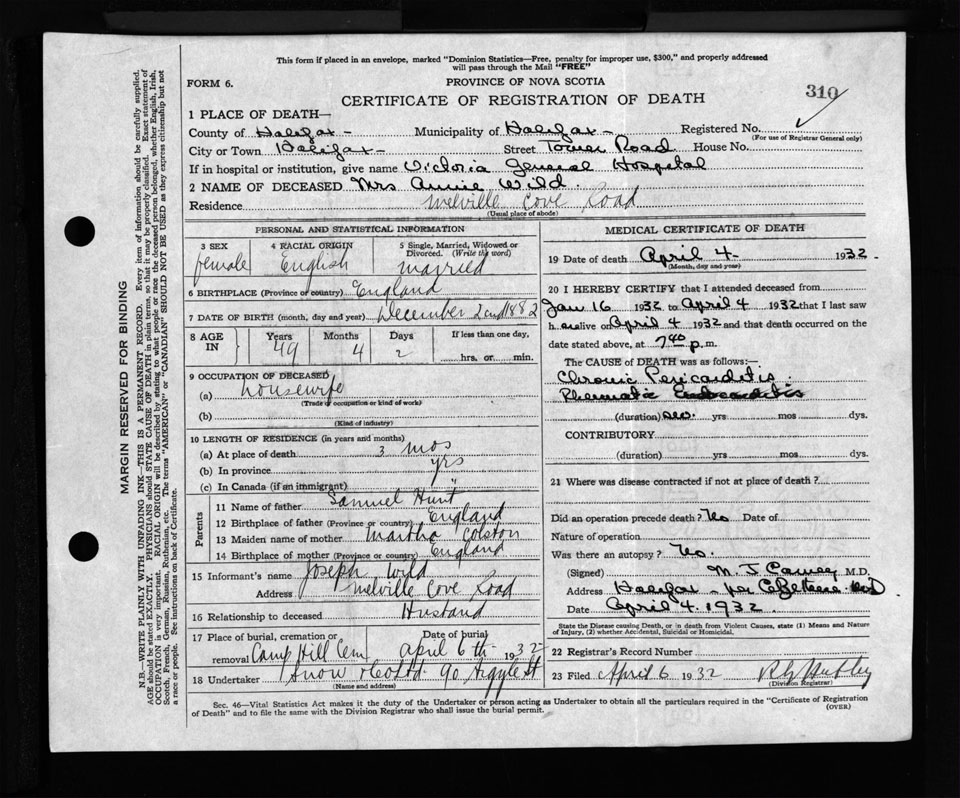 This form if placed in an envelope, marked "Dominion Statistics—Free, penalty for improper use, $300," and properly addressed
will pass through the Mail "FREE"
FORM 6.
PROVINCE OF NOVA SCOTIA
310
CERTIFICATE OF REGISTRATION OF DEATH
1 PLACE OF DEATH—
County of Halifax - Municipality of Halifax - Registered No.
(For use of Registrar General only)
City or Town Halifax - Street Tower Road House No.
If in hospital or institution, give name Victoria General Hospital
2 NAME OF DECEASED Mrs Annie Wild.
Residence Melville Cove Road
(Usual place of abode)
PERSONAL AND STATISTICAL INFORMATION
3 SEX 4 RACIAL ORIGIN 5 Single, Married, Widowed or Divorced. (Write the word)
female English married
6 BIRTHPLACE (Province or country) England
7 DATE OF BIRTH (month, day and year) December 2nd 1882
8 AGE IN Years Months Days If less than one day,
49 4 2 hrs. or min.
9 OCCUPATION OF DECEASED
(a) housewife
(Trade or occupation or kind of work)
(b)
(Kind of industry)
10 LENGTH OF RESIDENCE (in years and months)
(a) At place of death 3 mos
(b) In province yrs
(c) In Canada (if an immigrant) "
Parents
11 Name of father Samuel Hunt
12 Birthplace of father (Province or country) England
13 Maiden name of mother Martha Colston
14 Birthplace of mother (Province or country) England
15 Informant's name Joseph Wild
Address Melville Cove Road
16 Relationship to deceased Husband
17 Place of burial, cremation or removal Camp Hill Cem Date of burial April 6th 1932
18 Undertaker Snow & Co Ltd 90 Argyle St
(Name and address)
MEDICAL CERTIFICATE OF DEATH
19 Date of death April 4 - 1932.
(Month, day and year)
20 I HEREBY CERTIFY that I attended deceased from
Jan 16 1932 to April 4 1932 that I last saw
h er alive on April 4 1932 and that death occurred on the
date stated above, at 7.40 p.m.
The CAUSE of DEATH was as follows:—
Chronic Pericarditis.
Rheumatic
(duration) yrs mos dys.
CONTRIBUTORY
(duration) yrs mos dys.
21 Where was disease contracted if not at place of death?
Did an operation precede death? Date of
Nature of operation
Was there an autopsy?
(Signed) M. J. M.D.
Address Halifax - per
Date April 4. 1932.
State the Disease causing Death, or in death from Violent Causes, state (1) Means and Nature
of Injury, (2) whether Accidental, Suicidal or Homicidal.
22 Registrar's Record Number
23 Filed April 6 1932
(Division Registrar)
Sec. 46—Vital Statistics Act makes it the duty of the Undertaker or person acting as Undertaker to obtain all the particulars required in the "Certificate of Registration
of Death" and to file the same with the Division Registrar who shall issue the burial permit.
(OVER)
MARGIN RESERVED FOR BINDING
N.B.—WRITE PLAINLY WITH UNFADING INK—THIS IS A PERMANENT RECORD. Every item of information should be carefully supplied.
AGE should be stated EXACTLY. PHYSICIANS should STATE CAUSE OF DEATH in plain terms, so that it may be properly classified. Exact statement of
OCCUPATION is very important. RACIAL ORIGIN will be described by stating to what people or race the deceased person belonged, whether English, Irish,
Scotch, French, German, Russian, Ruthenian, etc. The terms "AMERICAN" or "CANADIAN" SHOULD NOT BE USED as they express citizenship but not
a race or people. See instructions on back of Certificate.